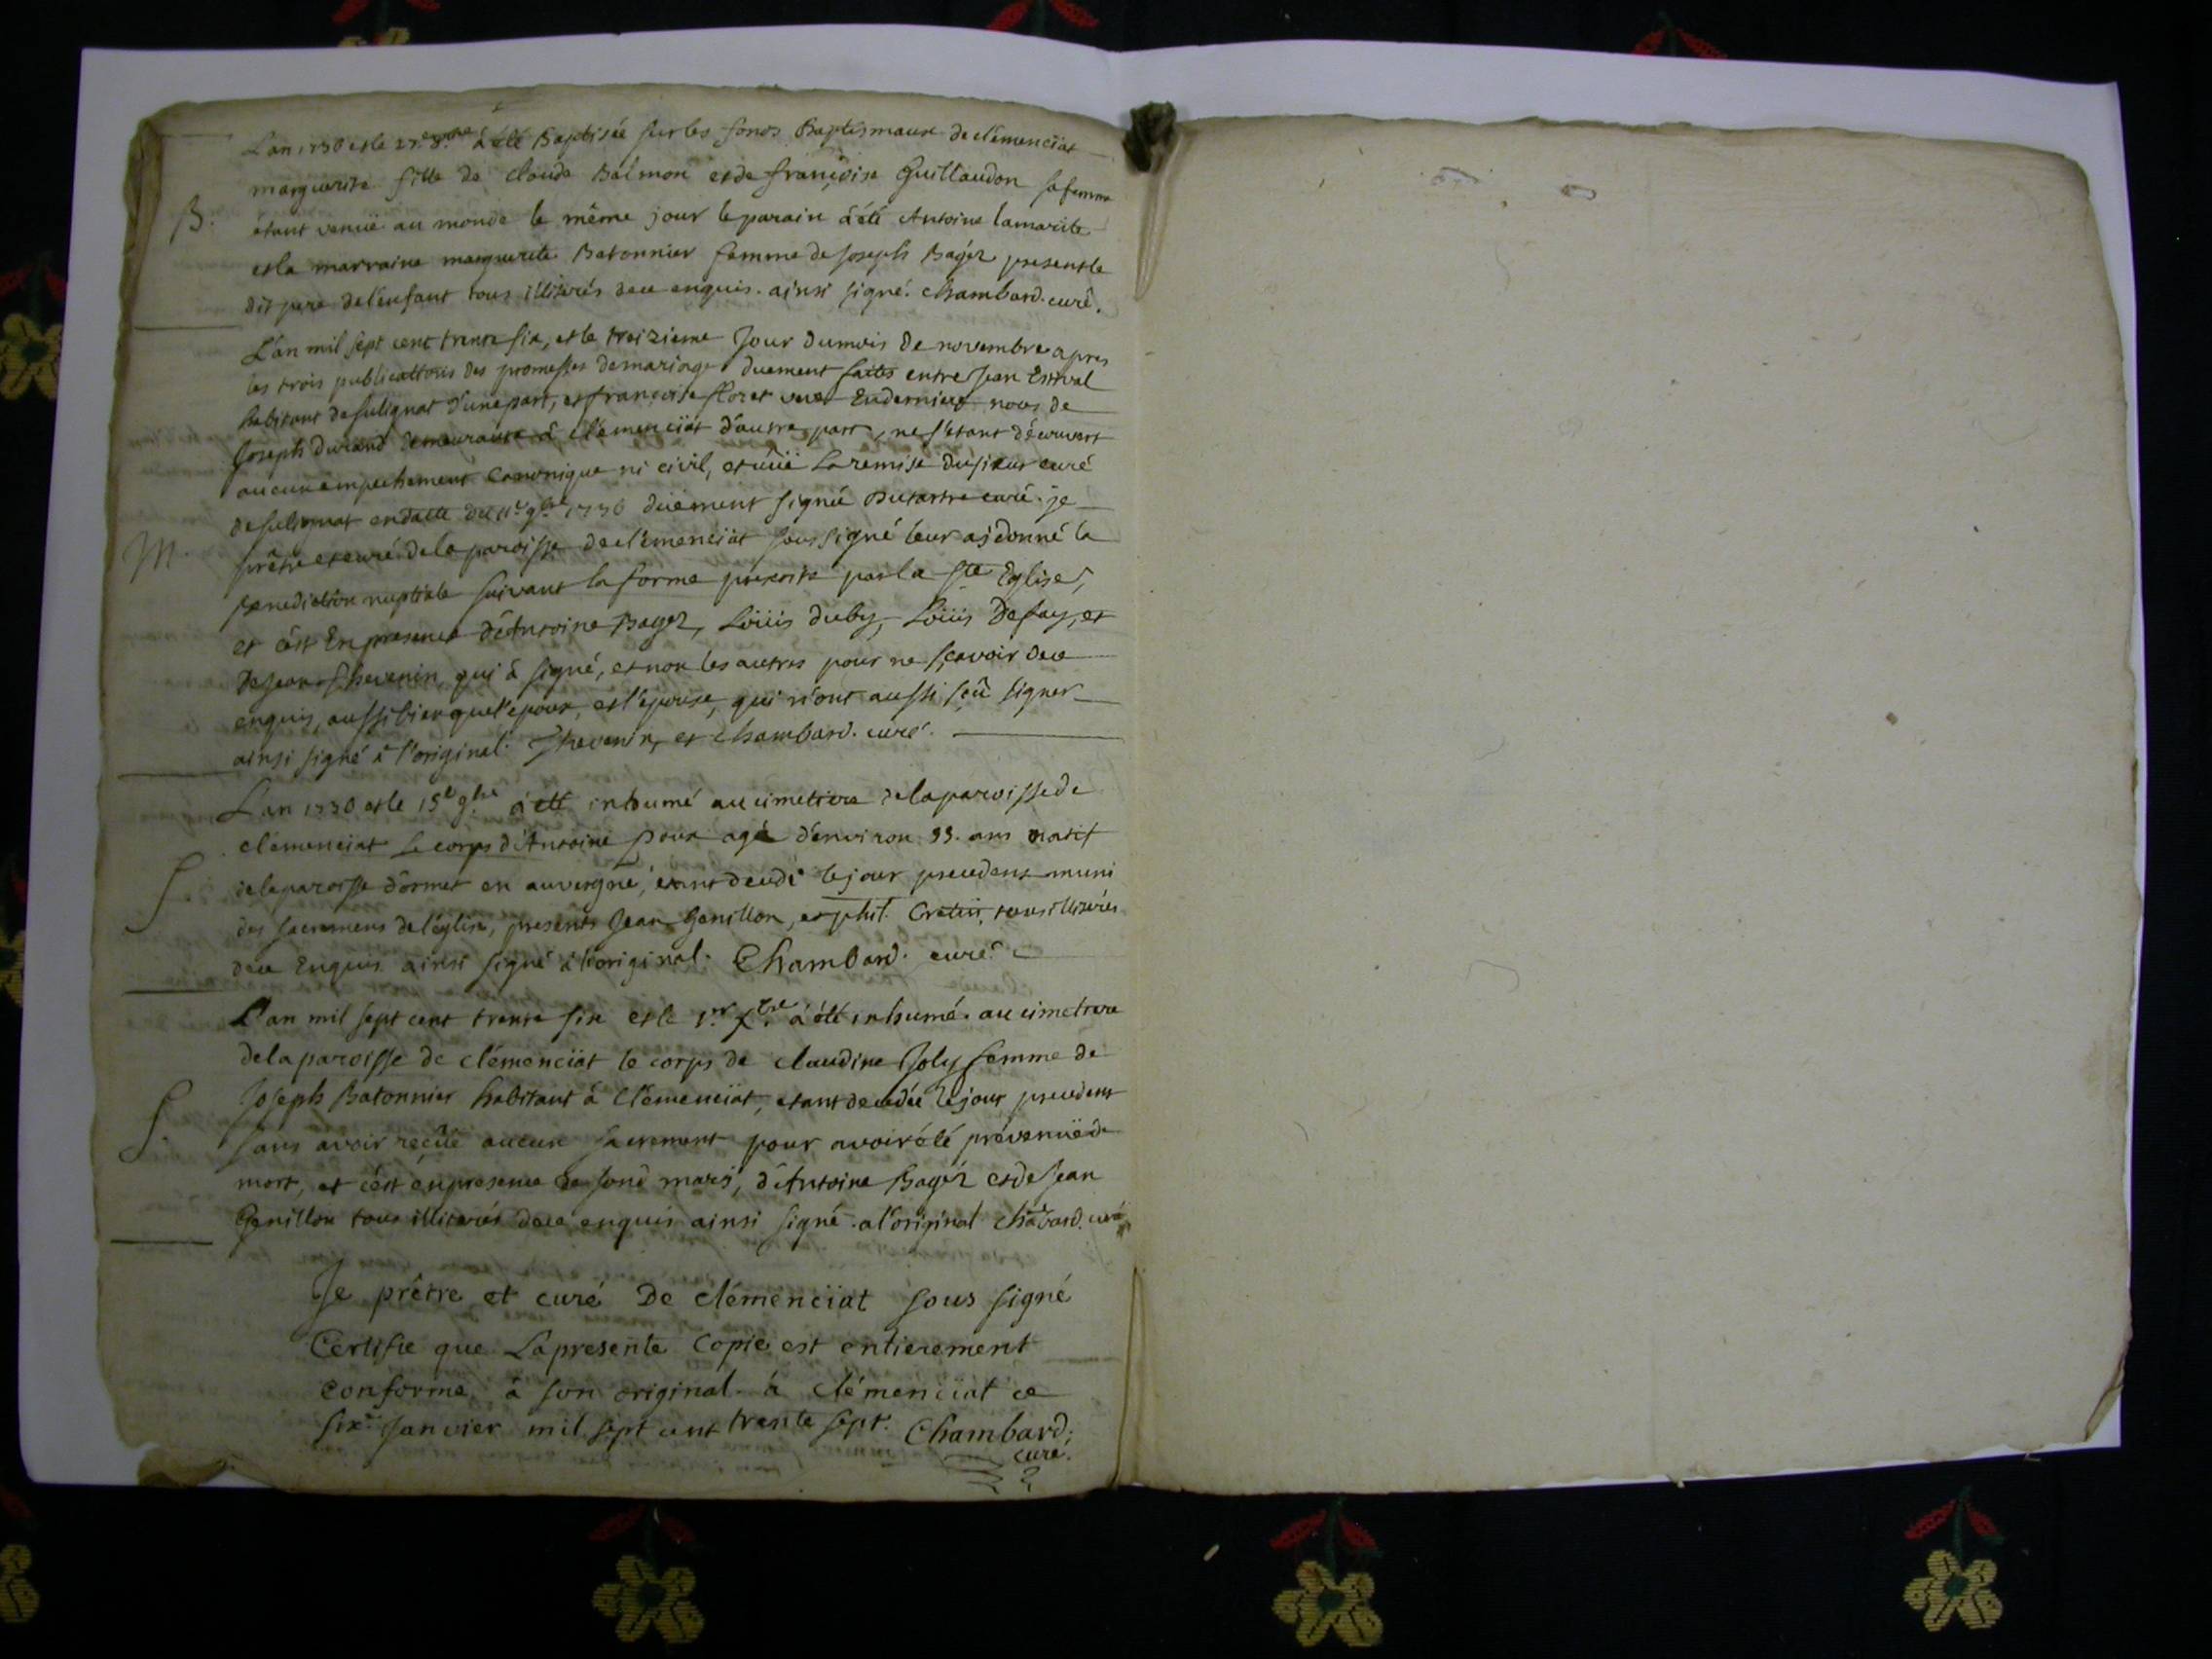 L'an 1736 et le 27e 8bre à été Baptisée sur les fonds Baptismaux de clémenciat
marguerite fille de claude Balmon et de françoise Guillaudon sa femme
B. etant venuë au monde le même jour le parain à été Antoine lamarüte
et la marraine marguerite Batonnier femme de Joseph Bagér present le
dit pere de l'enfant tous illiterés deue enquis. ainsi signé. Chambard. curé.
L'an mil sept cent trente six, et le treizieme Jour du mois de novembre apres
les trois publications des promesses de mariage duement faites entre Jean Estival
habitant de sulignat d'une part, et françoise floret veuve En dernieres noces de
Joseph durand demeurante à clémenciat d'autre part, ne s'etant découvert
aucun empechement Canonique ni civil, et vüe La remise du sieur curé
de sulignat en datte du 11e 9bre 1736 duement signée Dutartre curé. je
M. prêtre et curé de la paroisse de clémenciat sous signé leur aj donné la
benediction nuptiale suivant la forme prescrite par la ste Eglise,
et c'est En presence d'Antoine Bager, Loüis duby, Loüis Defay, et
de Jean Thevenin, qui à signé, et non les autres pour ne sçavoir deue
enquis, aussi bien que l'epoux, et l'epouse, qui n'ont aussi sçû signer
ainsi signé à l'original. Thevenin, et Chambard. curé.
L'an 1736 et le 15e 9bre à été inhumé au cimetiere de la paroisse de
clémenciat Le corps d'Antoine poux agé d'environ 33. ans natif
S. de la paroisse d'ormet en auvergne, etant decedé le jour precedent muni
des sacremens de l'église, presents Jean Genillon, et phil. Cretin, tous illiterés
deue Enquis ainsi signé à l'original. Chambard. curé
L'an mil sept cent trente six et le 1er Xbre à été inhumé. au cimetiere
de la paroisse de clémenciat le corps de claudine Joly femme de
Joseph Batonnier habitant à Clémenciat, etant decedée le jour precedent
S. sans avoir reçûë aucun sacrement pour avoir été prévenuë de
mort, et c'est en presence de sond mari, d'Antoine Bagér et de Jean
Genillon tous illiterés deue enquis ainsi signé. a l'original chabard. curé
Je prêtre et curé De clémenciat sous signé
Certifie que La presente Copie est entierement
conforme à son original. à clémenciat ce
sixe Janvier mil sept cent trente sept. Chambard,
curé.